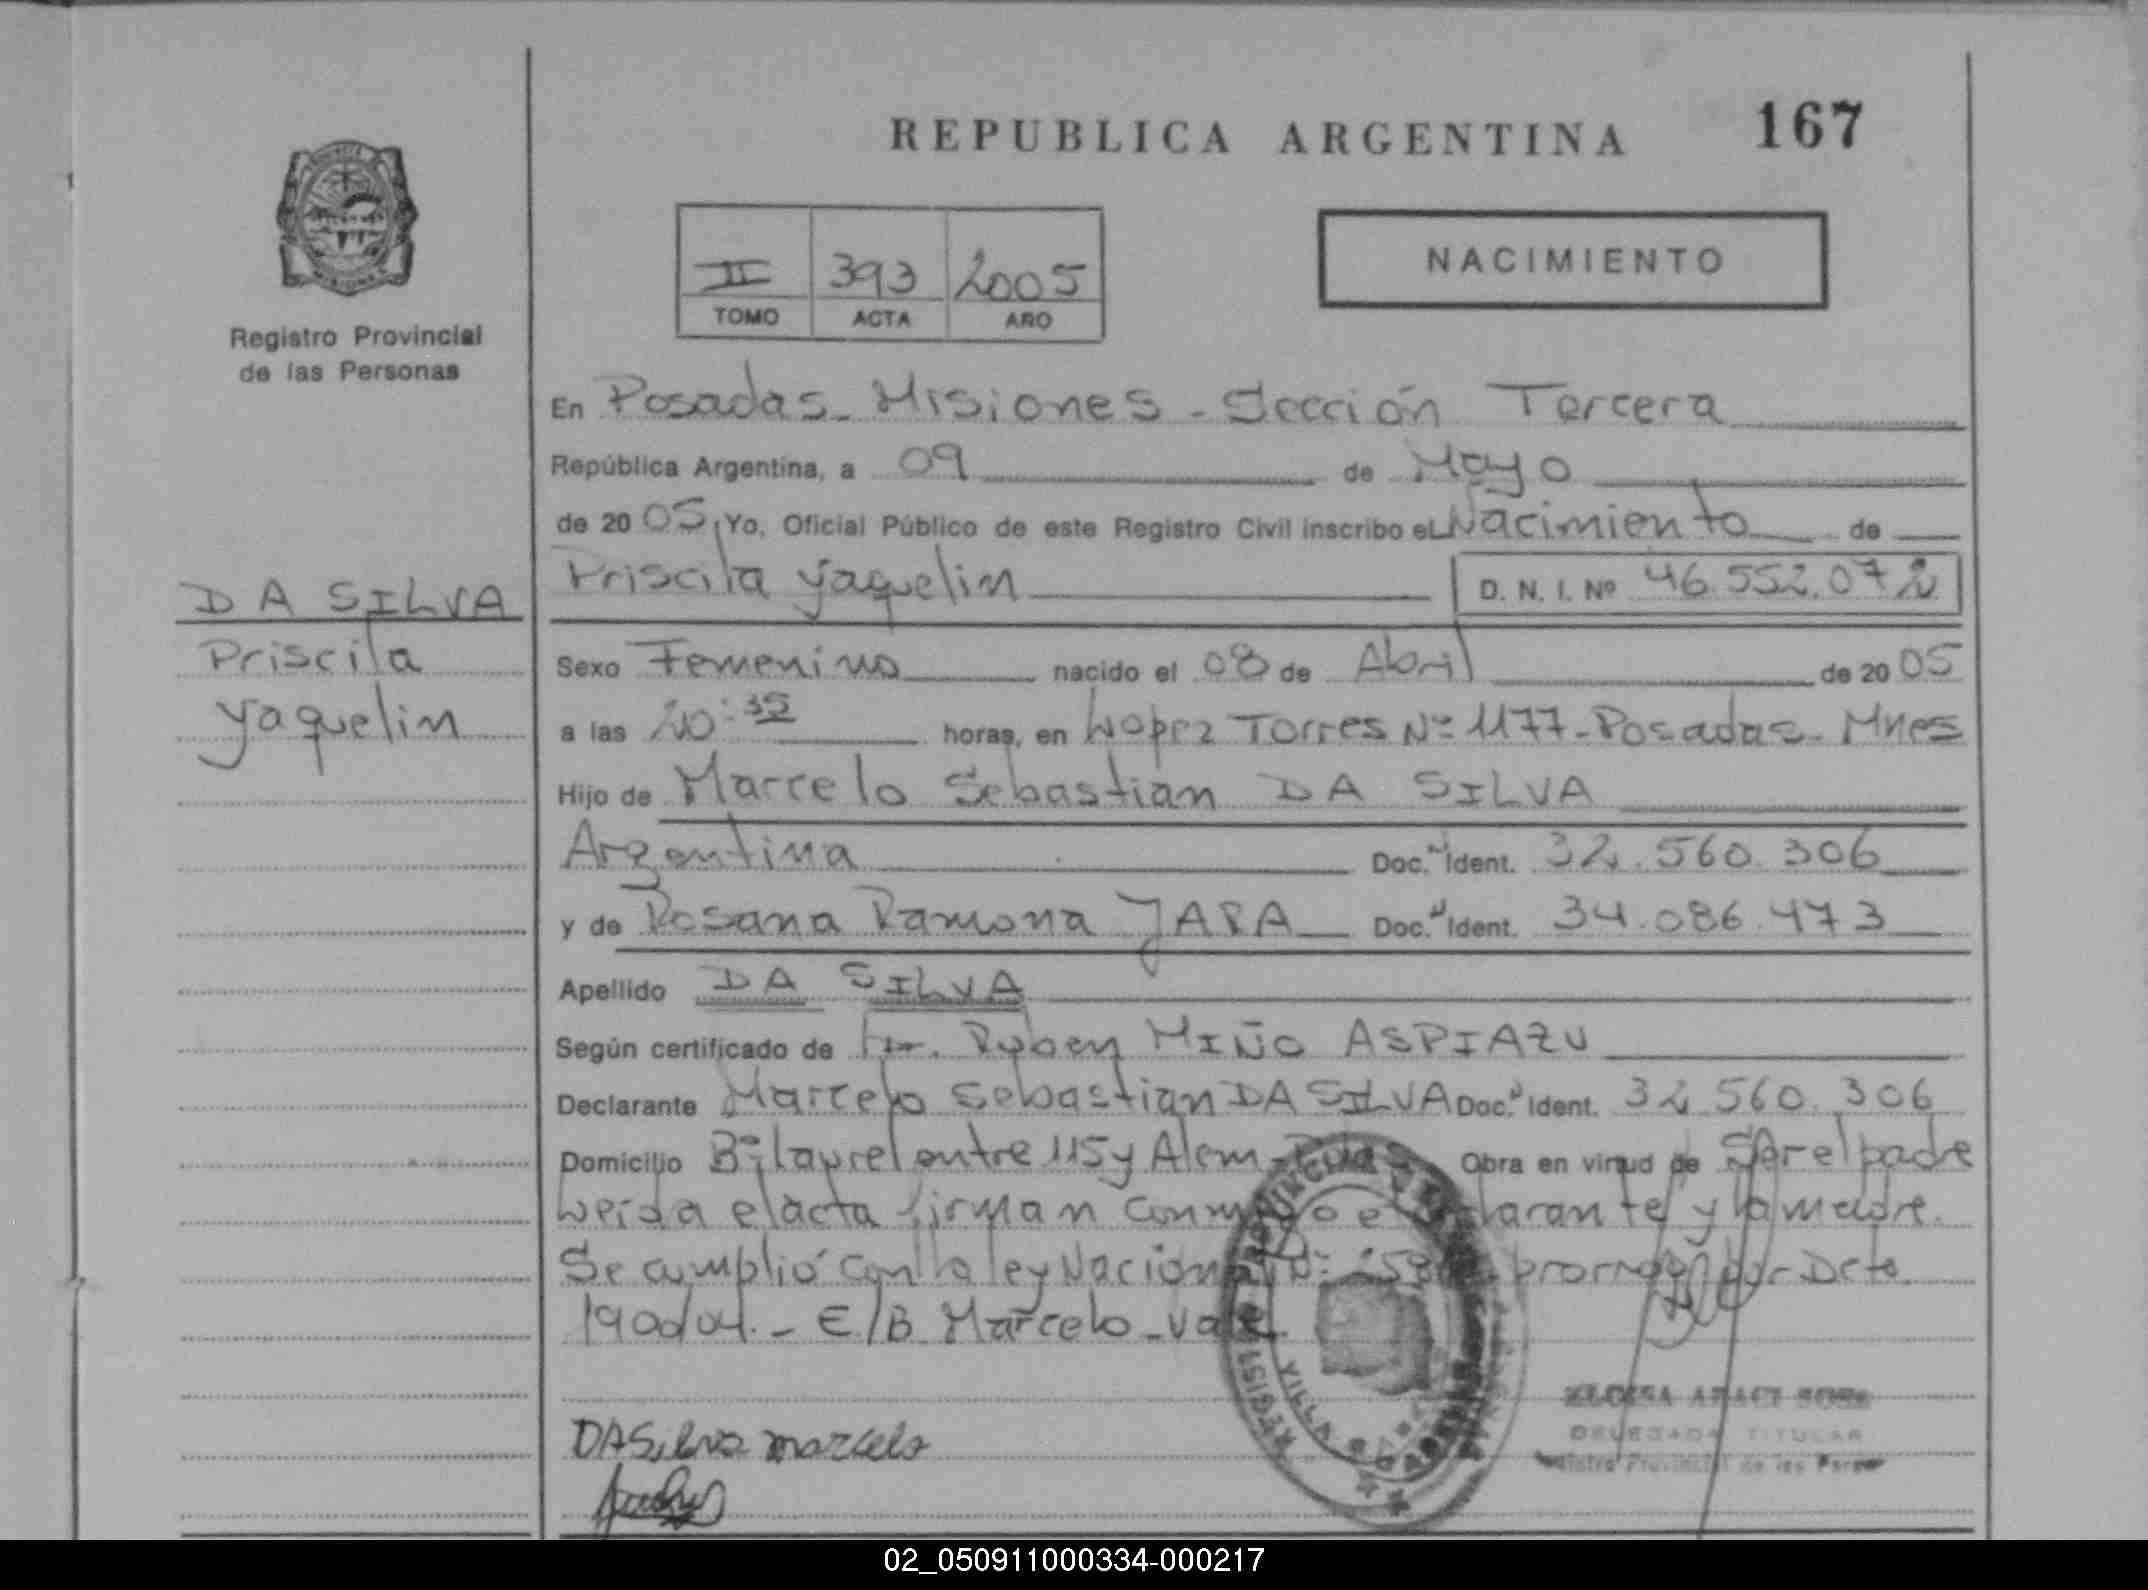 REPUBLICA ARGENTINA 167
II 393 2005
TOMO ACTA AÑO
NACIMIENTO
Registro Provincial
de las Personas
DA SILVA
Priscila
yaquelin
En Posadas - Misiones - Sección Tercera
República Argentina, a 09 de Mayo
de 2005, Yo, Oficial Público de este Registro Civil inscribo el Nacimiento de
Priscila yaquelin D. N. I. Nº 46.552.072
Sexo Femenino nacido el 08 de Abril de 2005
a las 20:35 horas, en López Torres Nº 1177 - Posadas - Mnes
Hijo de Marcelo Sebastian DA SILVA
Argentina Doc. Ident. 32.560.306
y de Rosana Ramona JARA Doc. Ident. 34.086.473
Apellido DA SILVA
Según certificado de Dr. Ruben MIÑO ASPIAZU
Declarante Marcelo Sebastian DA SILVA Doc. Ident. 32.560.306
Domicilio Bº Laurel entre 115 y Alem - Obra en virtud de Ser el padre
Leída el acta firman conmigo el declarante y la madre.
Se cumplió con la ley Nacional Nº prorrog por Dcto.
1900/04. - E/B Marcelo - vale.
DA Silva marcelo
DELEGADA TITULAR
Registro Provincial de las Personas
REGISTRO PROVINCIAL DE
VILLA
02_050911000334-000217